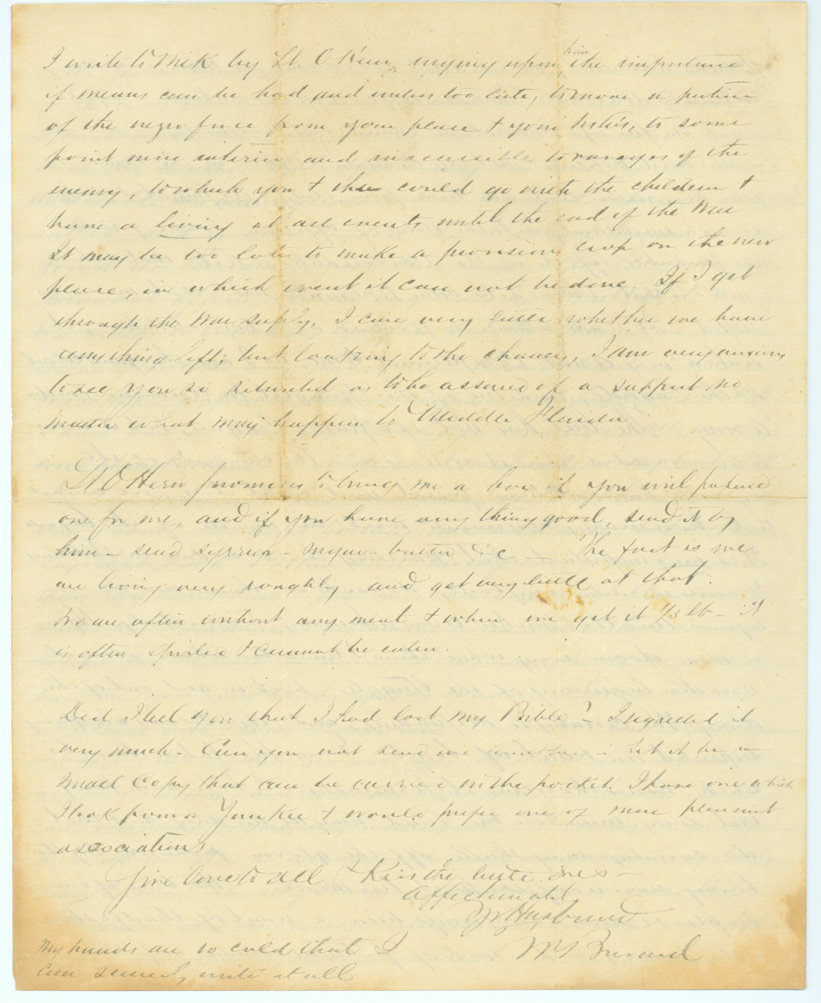 I write to Mek by Lt. O Hern urging upon him the importance
if means can be had and unless too late, to move a portion
of the negro force from your place & your to some
point more interior and inaccessible to ravages of the
enemy, to which you & she could go with the children &
have a living at all events until the end of the War
It may be too late to make a provision crop on the new
place, in which event it can not be done. If I get
through the War safely, I care very little whether we have
anything left; but looking to the chances, I am very anxious
to see you so situated as to be assured of a support no
matter what may happen to Middle Florida.
Lt O Hern promises to bring me a box if you will prepare
one for me, and if you have any thing good, send it by
him – send syrup – butter &c – The fact is we
are living very roughly and get very little at that.
We are often without any meat & when we get it 1/3 lb – it
is often spoiled & cannot be eaten.
Did I tell you that I had lost my Bible? – I regretted it
very much. Can you not send me another – let it be a
small copy that can be carried in the pocket. I have one which
I took from a Yankee & would prefer one of more pleasant
associations
Give love to all & Kiss the little ones –
Affectionately
Yr Husband
my hands are so cold that I
can scarcely write at all